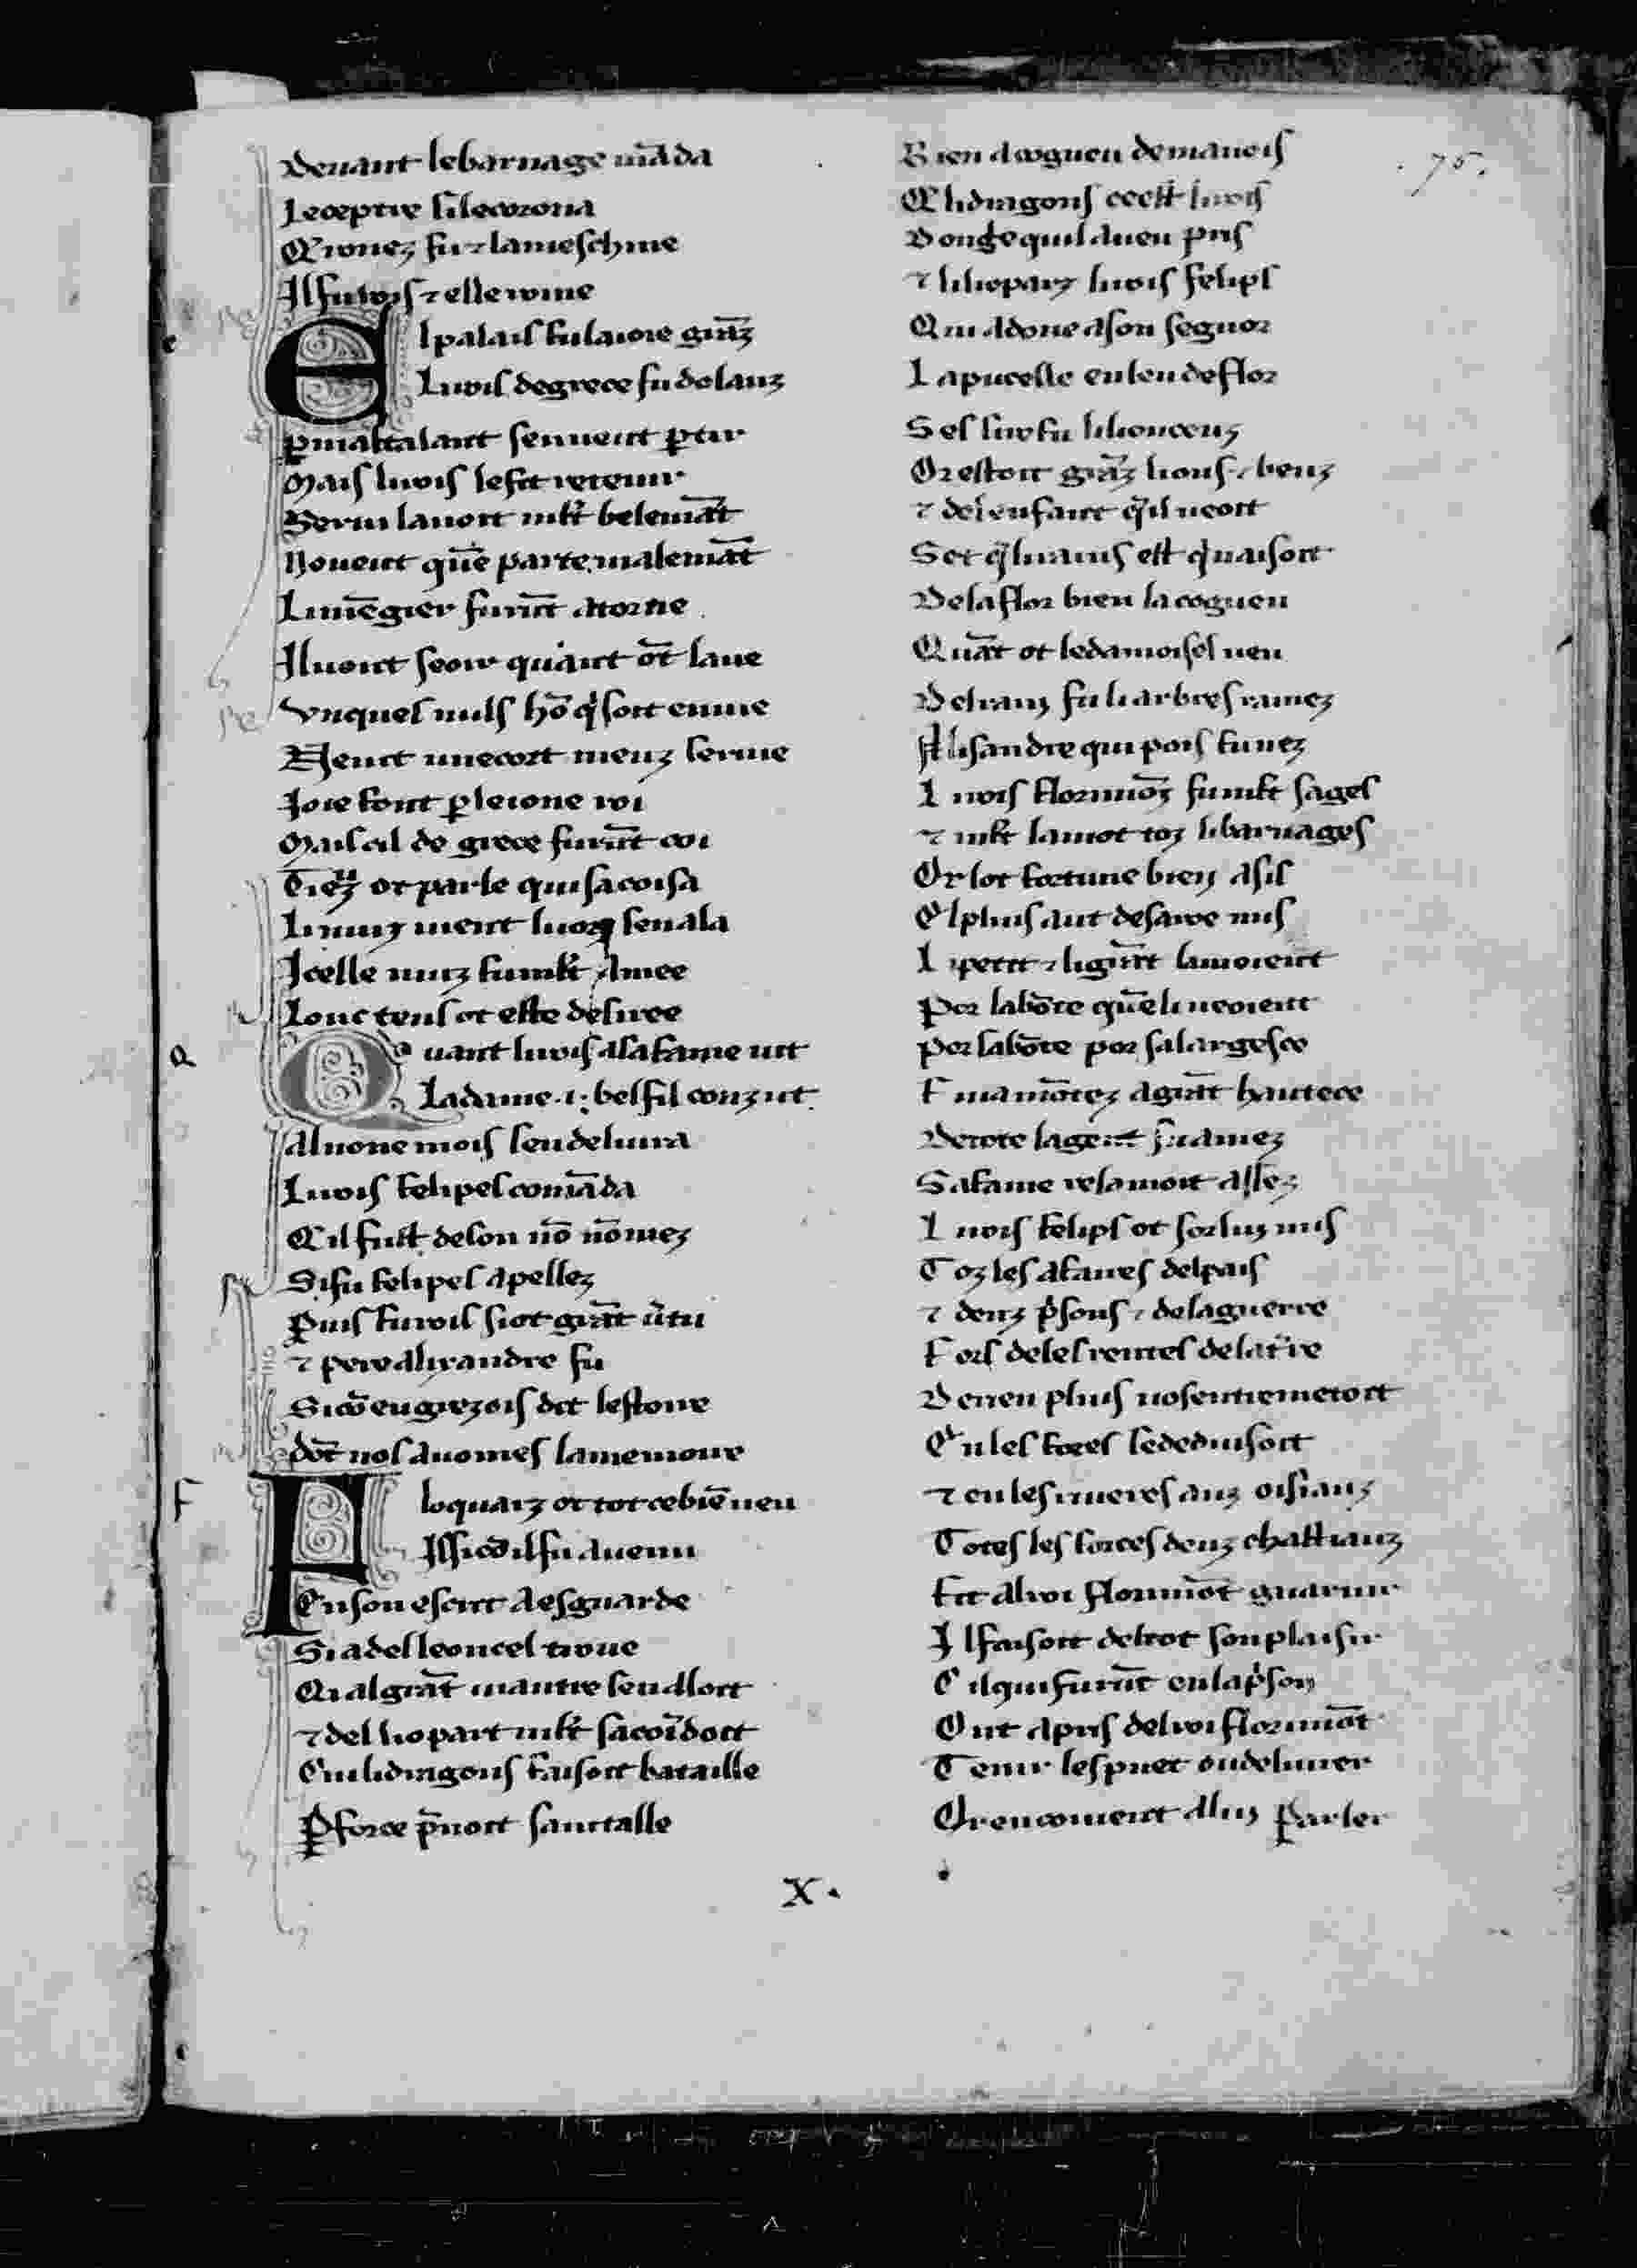 Deuant lebarnage mãda
Leceptre si lecorona
Coronez fu ⁊ lameschine
Il fu rois ⁊ elle roine
El palais fu la ioie grãz
Li rois de grece fu dolanz
ꝑ maltalant sen uent ꝑtir
Mais li rois le fet retenir
Serui lauoit mlt̃ belemãt
Nouent que parte malemãt
Li mẽgier furẽt atorne
Il uont seoir quant õt laue
Vnques nuls hõ qͥ soit en uie
Ne uit une cort meuz seruie
Ioie font ꝑ le ione roi
Mais cil de grece furẽt coi
Tãt ot parle qui sacoisa
Li nuiz uient li iorz sen ala
Icelle nuiz fu mlt̃ amee
Lonc tens ot este desiree
Quant li rois a sa fame uit
La dame .i. bel fil conzut
Al noue mois sen deliura
Li rois felipes comãda
Cil fust de son nõ nõmez
Si fu felipes apellez
Puis fu rois si ot grãt ũtu
⁊ pere alixandre fu
Si cõ en grezois dit lestoire
dõt nos auomes la memoire
Floquarz ot tot ce biẽ ueu
Issi cõ il fu auenu
En son escrit a esguarde
Si a del leoncel troue
Qi al grãt mantre sen aloit
⁊ del liopart mlt̃ sacoĩdoit
Cui li dragons faisoit bataille
ꝑ force p̃noit sanz taille
Bien a cogneu demaneis
Qe li dragons ce est li rois
Don ge quil aueu pris
⁊ li lioparz li rois felips
Qui a done a son segnor
La pucelle en leu de flor
Ses fiuz fu li lionceuz
Or estoit grãz lions ⁊ beuz
⁊ del enfant qͥl ueoit
Set qͥ li rams est qͥ naisoit
De la flor bien la cogneu
Quãt ot le damoisel ueu
De li ranz fu li arbres ramez
Alisandre qui pois fu nez
Li rois florimõz fu mlt sages
⁊ mlt lamot toz li barnages
Or lot fortune bien asis
El plus aut de sa roe mis
Li petit ⁊ li grãt lamoient
Por la bõte que li ueoient
Por sa bõte por sa largesce
Fu mamõtez a grãt hautece
De tote la gent fu amez
Sa fame relamoit assez
Li rois felips ot sor luz mis
Toz les afaires del pais
⁊ denz pͥsons ⁊ de la guerre
Fors de ses rentes de la t̃re
De rien plus no sentremetoit
En les forez se deduisoit
⁊ en les riueres auz oisiauz
Totes les forces denz chastiauz
Fit al roi florimõt guarnir
Il faisoit de trot son plaisir
Cil qui furẽt en la pͥson
Ont apris del roi florimõt
Tenir les puet o u deliurer
Or en couient a luz ꝑarler
X.
.75.